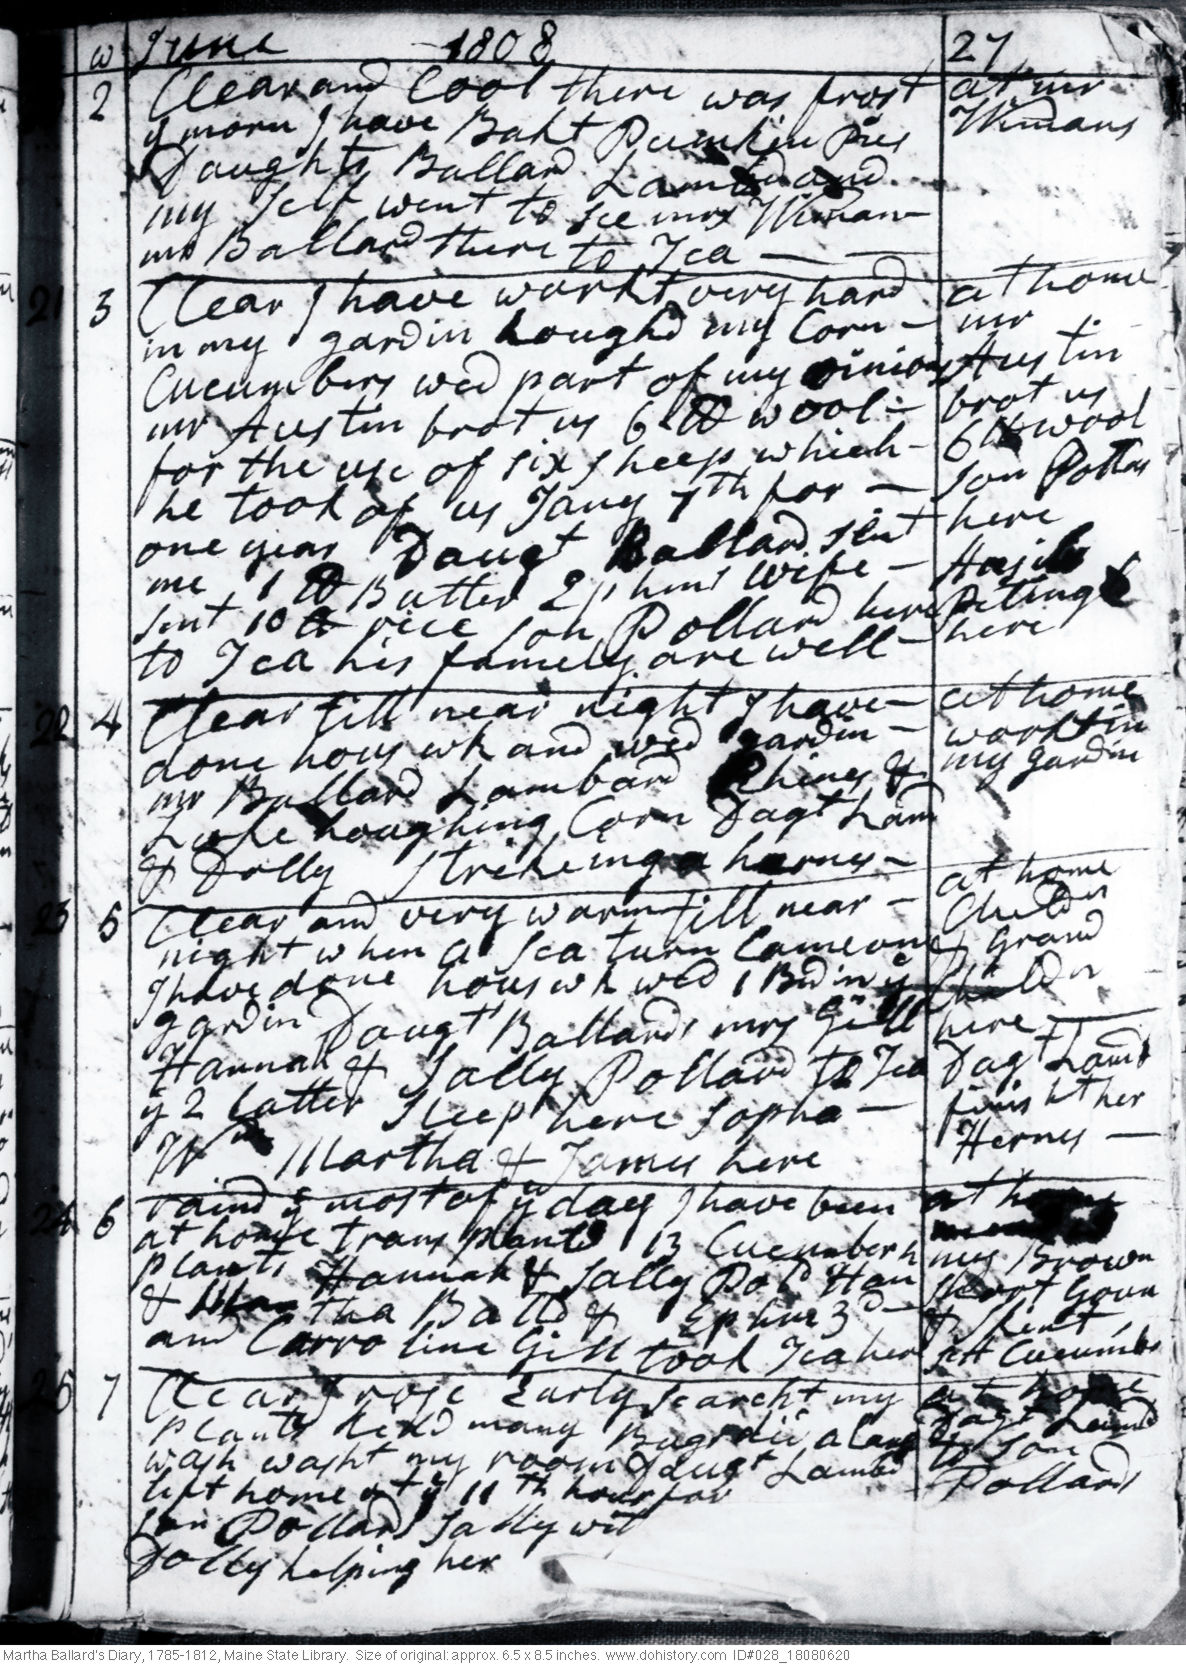 w June 1808 27
2 Clear and Cool there was frost at mr
y morn I have Bakt Pumkin Pies Wimans
Daughts Ballard Lambd and
my Self went to see mrs Wiman
mr Ballard there to Tea
21 3 Clear I have workt very hard at home
in my gardin houghd my Corn mr
Cucumbers wed part of my oinions Austin
mr Austin brot us 6 lb wool brot us
for the use of six sheep which 6 lb wool
he took of us Jany 7th for son Pollas
one year Daugt Ballard sent here
me 1 lb Butter Ephms wife
sent 10 lb rice son Pollard here Peting
to Tea his famely are well here
22 4 Clear till near night I have at home
done hous wk and wed gardin workt in
mr Ballard Lambard Shines & my gardin
Luke houghing Corn Dagt Lam
& Dolly strikeing a harnes
23 5 Clear and very warm till near at home
night when a Sea turn Came one Childn
I have done hous wk wed 1 Bd in ye & Grand
gardin Daugt Ballard, mrs Gill Childn
Hannah & Sally Pollard to Tea here
y 2 latter Sleep here Sopha Dagt Lamb
Wm Martha & James here finisht her
Hernes
24 6 raind y most of y day I have been at home
at home transplantd 13 Cucumber
plants Hannah & Sally Pold Han mrs Brown
& Martha Balld & Ephm 3d
and Carroline Gill took Tea her
25 7 Clear I rose Early searcht my at home
plants kild many Bugs did a large Dagt Lambd
wash washt my room Daugt Lambd to son
left home at y 11th hour for Pollards
son Pollard Sally wit
Dolly helping her
Martha Ballard's Diary, 1785-1812, Maine State Library. Size of original: approx. 6.5 x 8.5 inches. www.dohistory.com ID#028_18080620